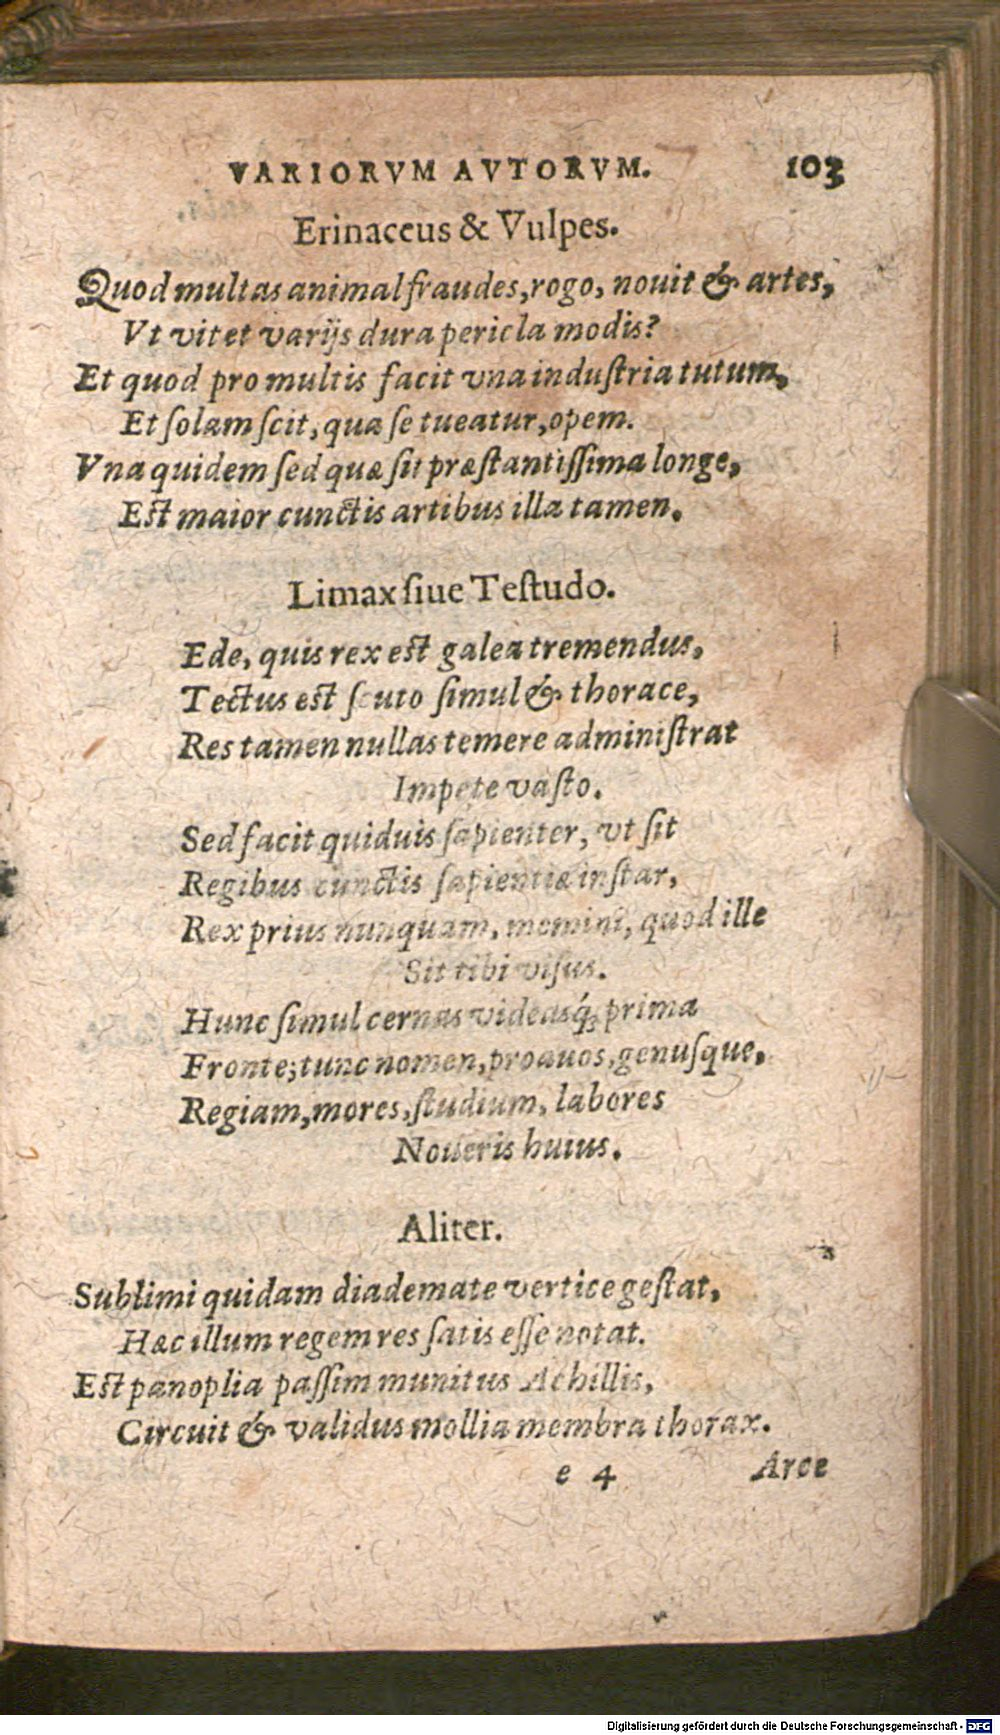 VARIORVM AVTORVM. 103
Erinaceus & Vulpes.
Quod multas animal fraudes, rogo, nouit & artes,
Vt vitet varijs dura pericla modis?
Et quod pro multis facit vna industria tutum,
Et solam scit, qua se tueatur, opem.
Vna quidem sed quæ sit præstantissima longe,
Est maior cunctis artibus illa tamen.
Limax siue Testudo.
Ede, quis rex est galea tremendus,
Tectus est scuto simul & thorace,
Res tamen nullas temere administrat
Impete vasto.
Sed facit quiduis sapienter, vt sit
Regibus cunctis sapientiæ instar,
Rex prius nunquam, memini, quod ille
Sit tibi visus.
Hunc simul cernas videasq́; prima
Fronte; tunc nomen, proauos, genusque,
Regiam, mores, studium, labores
Noueris huius.
Aliter.
Sublimi quidam diademate vertice gestat,
Hæc illum regem res satis esse notat.
Est panoplia passim munitus Achillis,
Circuit & validus mollia membra thorax.
e 4 Arce
Digitalisierung gefördert durch die Deutsche Forschungsgemeinschaft - DFG